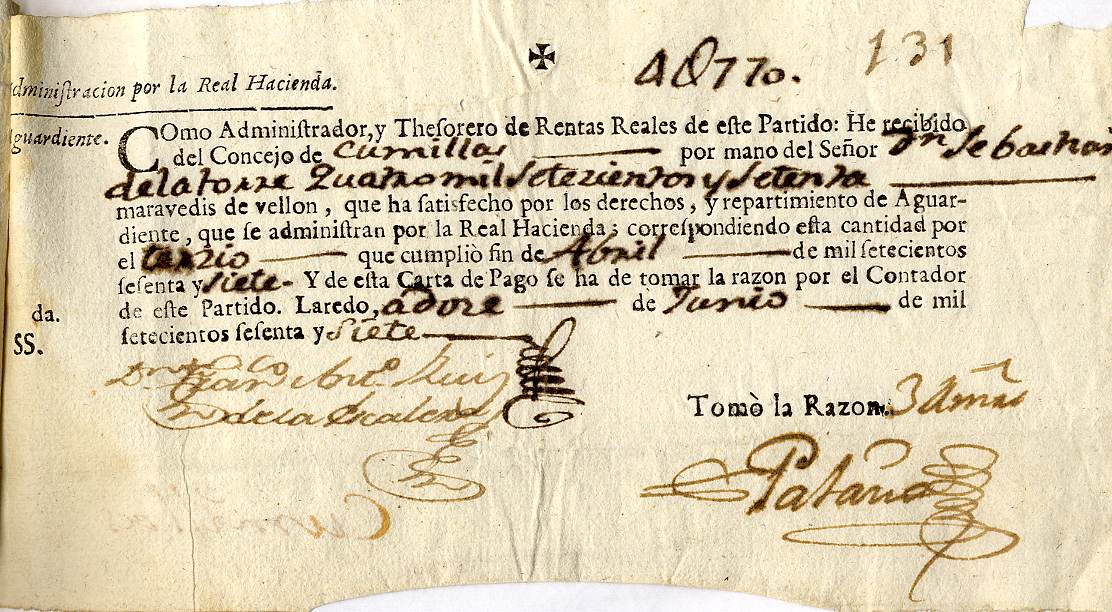 131
4Q770.
dminiſtracion por la Real Hacienda.
guardiente.
COmo Adminiſtrador, y Theſorero de Rentas Reales de eſte Partido: He recibido
del Concejo de Cumillas por mano del Señor Dn Sebastian
de la torre Quatro mil setezientos y setenta
maravedis de vellon, que ha ſatisfecho por los derechos, y repartimiento de Aguar-
diente, que ſe adminiſtran por la Real Hacienda; correſpondiendo eſta cantidad por
el terzio que cumpliò fin de Abril de mil ſetecientos
ſeſenta y siete. Y de eſta Carta de Pago ſe ha de tomar la razon por el Contador
da. de eſte Partido. Laredo, a doze de Junio de mil
SS. ſetecientos ſeſenta y siete
Dn Franco Anto. Ruiz
de la Escalera
Tomò la Razon.